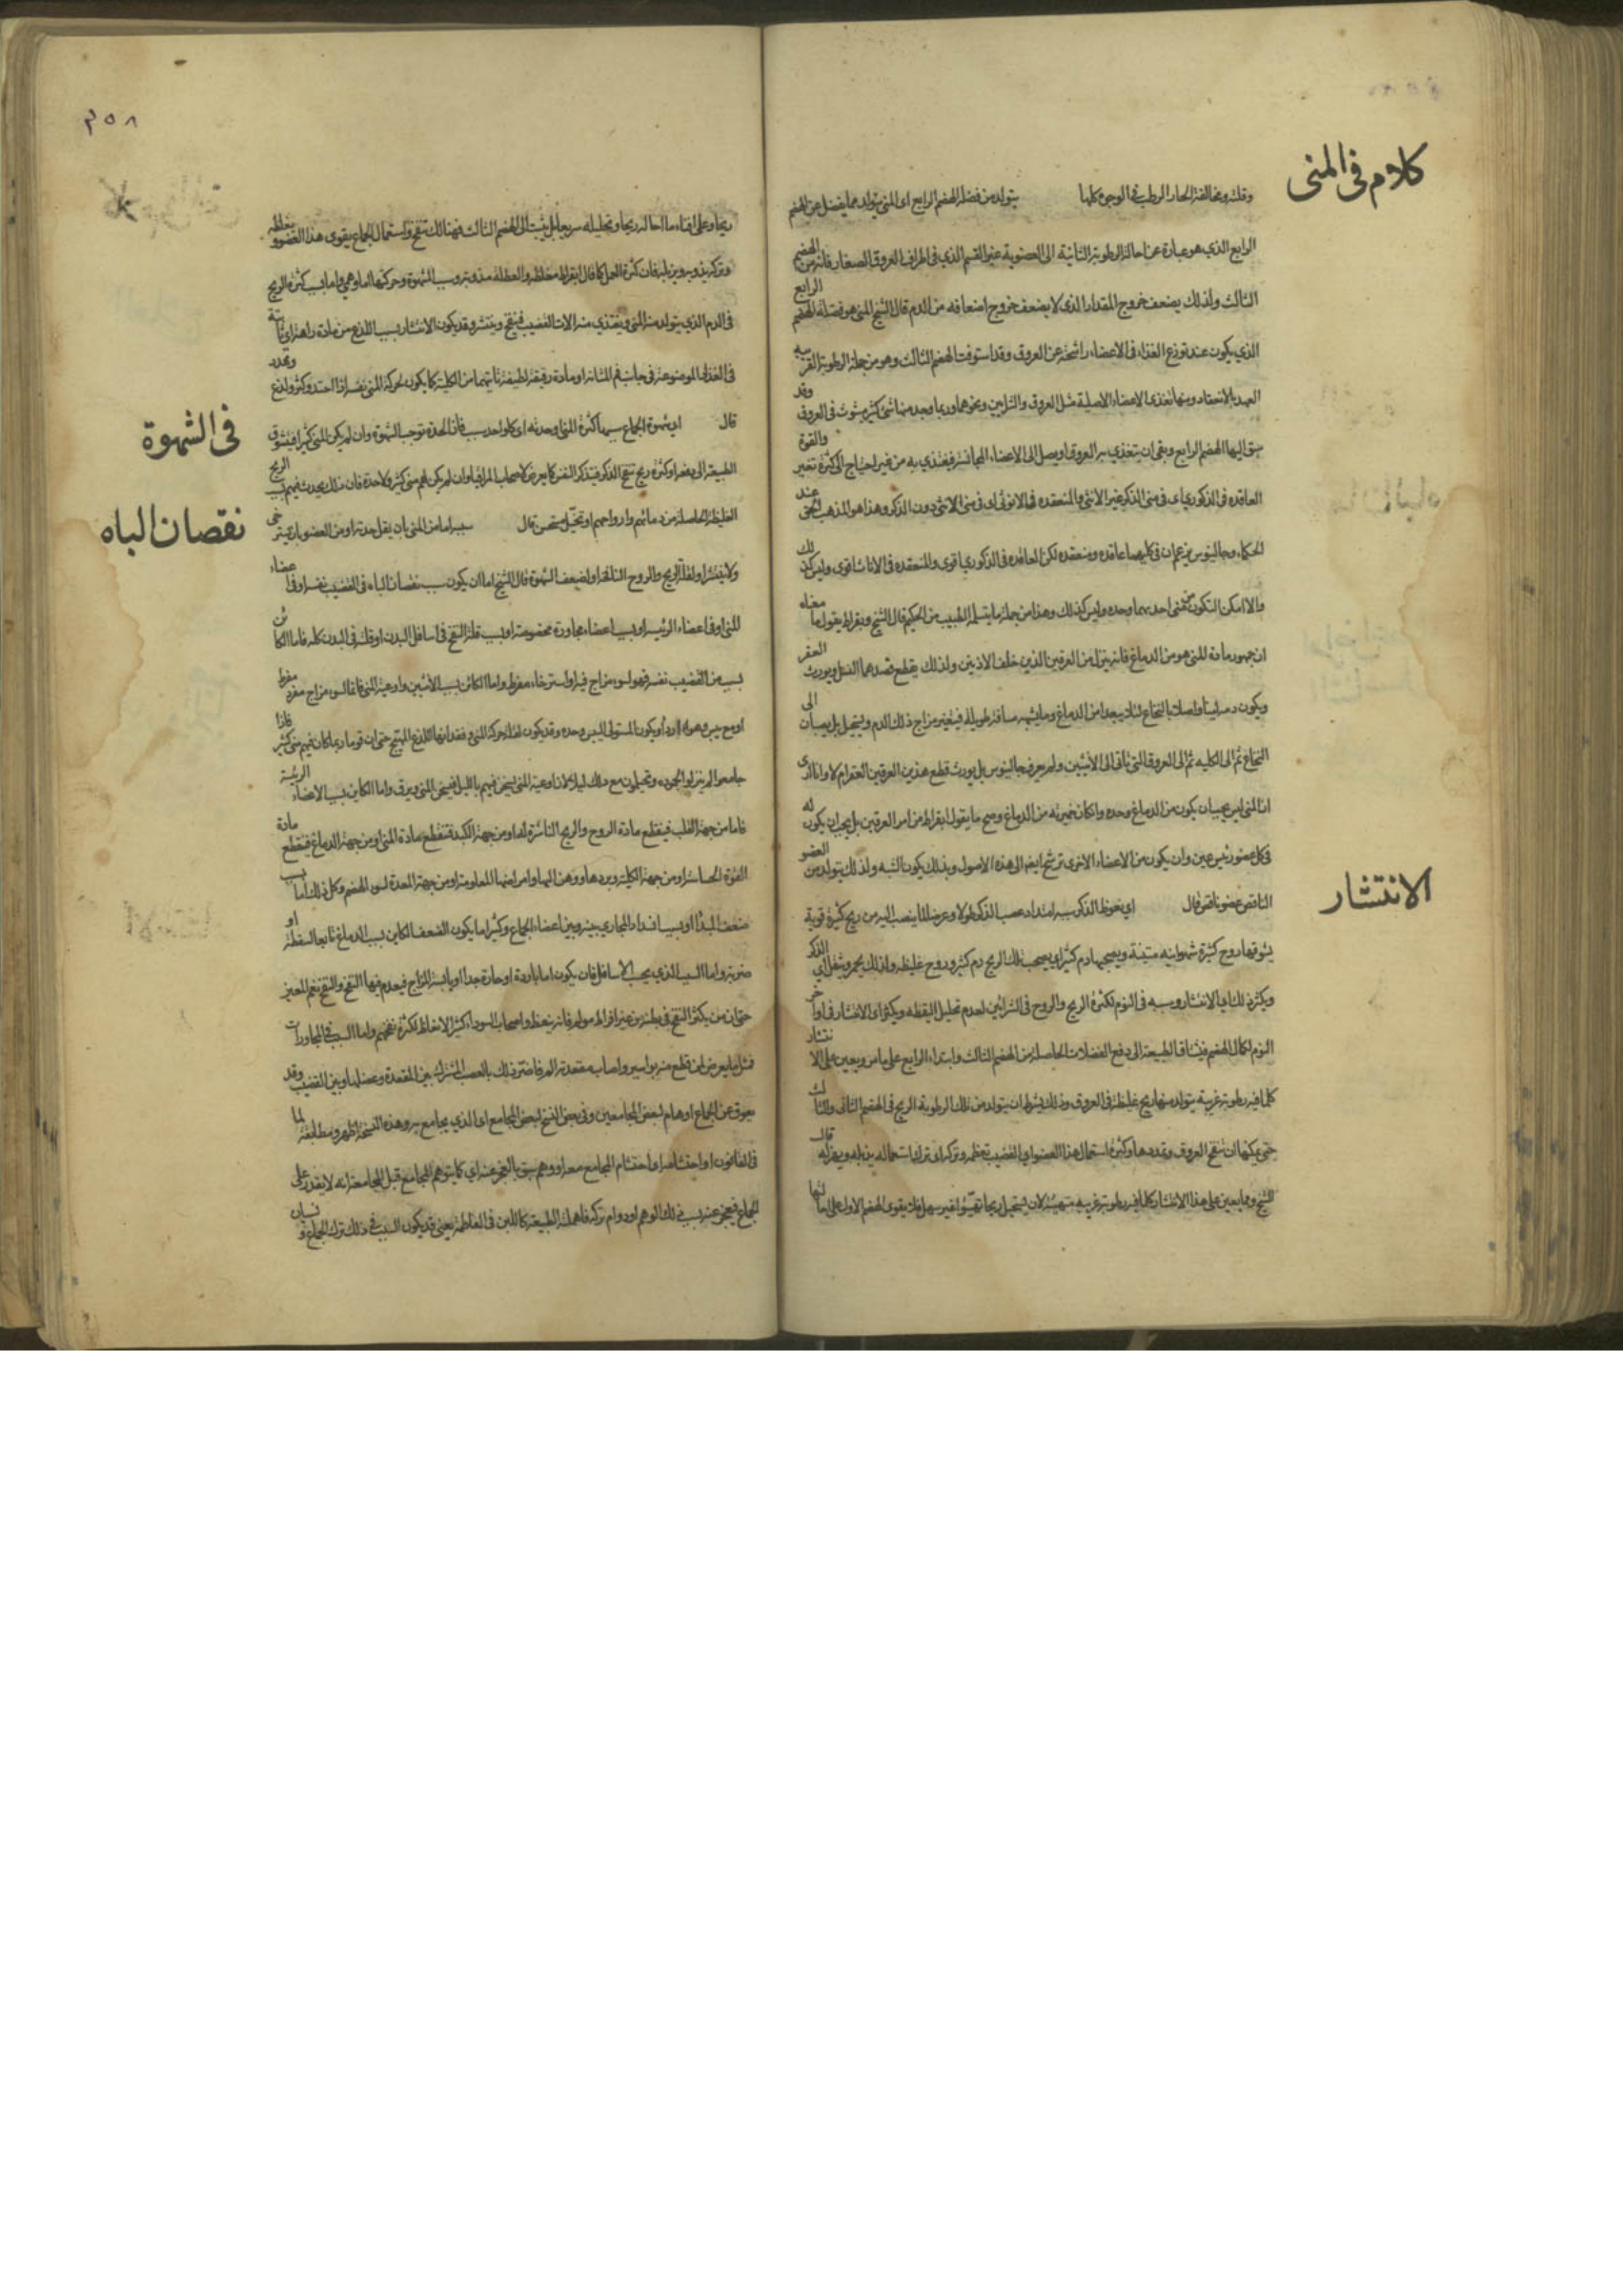 كلام في المنى
وقلته ومخالفته الحار الرطب في الوجوه كلها يتولد من فضلة الهضم الرابع اى المنى يتولد مما يفضل عن الهضم
الرابع الذي هو عبارة عن احالة الرطوبة الثانية الى العضوية غير القسم الذي في اطراف العروق الصغار فانه من الهضم
الثالث ولذلك يضعف خروج المقدار الذى لا يضعف خروج اضعافه من الدم قال الشيخ المنى هو فضلة الهضم الرابع
الذي يكون عند توزع الغذاء في الاعضاء راشحة عن العروق وقد استوفت الهضم الثالث وهو من جملة الرطوبة القريبة
العهد بالانعقاد ومنها تغذى الاعضاء الاصلية مثل العروق والشرايين ونحوهما وربما وجد منها شئ كثير مبثوث في العروق وقد
سبق اليها الهضم الرابع وبقى ان يتغذي به العروق او يصل الى الاعضاء المجانسة فيغذي به من غير احتياج الى كثرة تغير والقوة
العاقده في الذكوري اى في منى الذكر غير الانثى والمنعقده في الانوثى اى في منى الانثى دون الذكر وهذا هو المذهب الحق عند
الحكماء وجالينوس يزعم ان في كليهما عاقده ومنعقده لكن العاقده في الذكوري اقوى والمنعقده في الاناث اقوى وليس كذلك
والا امكن التكون من منى احدهما وحده وليس كذلك وهذا من جملة ما يتسلمه الطبيب من الحكيم قال الشيخ وبقراط يقول ما معناه
ان جمهور مادة المنى هو من الدماغ فانه ينزل من العرقين الذين خلف الاذنين ولذلك يقطع فصدهما النسل ويورث العقر
ويكون دمه لبنيا وصلا بالنخاع لئلا يبعدا من الدماغ وما يشبهه مسافة طويلة فيتغير مزاج ذلك الدم ويستحيل بل يصبان الى
النخاع ثم الى الكليه ثم الى العروق التي تأتي الى الانثيين ولم يعرف جالينوس هل يورث قطع هذين العرقين العقر ام لا وانا ارى
ان المنى ليس يجب ان يكون من الدماغ وحده وان كان خميرته من الدماغ وصح ما يقوله ابقراط من امر العرقين بل يجب ان يكون له
في كل عضو رئيس عين وان يكون من الاعضاء الاخرى ترشح ايضا الى هذه الاصول وبذلك يكون الشبه ولذلك يتولد من العضو
الناقص عضو ناقص قال اي نعوظ الذكر سببه امتداد عصب الذكر طولا وعرضا لما ينصب اليه من ريح كثيرة قوية
الانتشار
يسوقها روح كثيرة شهوانيه متينة ويصحبها دم كثير اي يصحب تلك الريح دم كثير وروح غليظه ولذلك يحمر ويثقل اي الذكر
ويكثر ذلك اي الانتشار وسببه في النوم لكثرة الريح والروح في الشرائين لعدم تحليل اليقظه ويكثر اى الانتشار في اواخر
النوم لكمال الهضم فيشتاق الطبيعة الى دفع الفضلات الحاصلة من الهضم الثالث وابتداء الرابع على ما مر ويعين على الانتشار
كلما فيه رطوبة غريبة يتولد منها ريح غليظة في العروق وذلك بشرط ان يتولد من تلك الرطوبة الريح في الهضم الثانى والثالث
حتى يمكنها ان تنفخ العروق وتمددها وكثرة استعمال هذا العضو اي القضيب تعظمه وتركه اى ترك استعماله يذبله ويهزله قال
الشيخ ومما يعين على هذا الانتشار كلما فيه رطوبة غريبه متهيئة لان يستحيل ريحا تهيئوا غير سهل فلا يقوى الهضم الاول على احالتها
٣٥٨
ريحا وعلى افناء ما احاله ريحا وتحليله سريعا بل يثبت الى الهضم الثالث فهنالك تنفخ واستعمال الجماع يقوى هذا العضو ويغلظه
وتركه يذويه ويذبله فان كثرة العمل كما قال ابقراط مغلظه والعطلة مذوبة وسبب الشهوة وحركتها اما وهمي واما بسبب كثرة الريح
في الدم الذي يتولد منه المنى ويغتذي منه الات القضيب فينفخ وينتشر وقد يكون الانتشار بسبب اللذع من مادة
في الغدد الموضوعة في جانب فم المثانة او مادة رقيقة لطيفة تأتيهما من الكلية كما يكون لحركة المنى نفسه اذا احتد وكثر ولذع وتمدد
في الشهوة
قال اي شهوة الجماع سببها كثرة المنى او حدته اى كل واحد سبب فان الحدة توجب الشهوة وان لم يكن المنى كثيرا فيتشوق
الطبيعة الى دفعه او كثرة ريح تنفخ الذكر فيتذكر النفس كما يعرض لاصحاب المراقيا وان لم يكن لهم منى كثير ولا حدة فان ذلك يحدث فيهم بسبب الريح
نقصان الباه
الغليظة الحاصلة من دمائهم وارواحهم او تخيل مستحسن قال سببه اما من المنى بان يقل حدته او من العضو بان يسترخى
ولا ينتشر او لقلة الريح والروح النافخة او لضعف الشهوة قال الشيخ اما ان يكون سبب نقصان الباه في القضيب نفسه او في اعضاء
المنى او في اعضاء الرئيسة او بسبب اعضاء مجاورة مخصوصة او بسبب قلة النفخ في اسافل البدن او قلته في البدن كله فاما الكائن
بسبب من القضيب نفسه فهو لسوء مزاج فيه او استرخاء مفرط واما الكائن بسبب الانثيين واوعية المنى فاما لسوء مزاج مفرد مفرط
او مع يبس وهو اردأ ويكون المستولى اليبس وحده وقد يكون لقلة حركة المنى وفقدانها اللذع المهيج حتى ان قوما ربما كان فيهم منى كثير فاذا
جامعوا لم ينزلوا لجموده ويحتلمون مع ذلك ليلا لان اوعية المنى يسخن فيهم بالليل فيسخن المنى ويرق واما الكاين بسبب الاعضاء الرئيسة
فاما من جهة القلب فينقطع مادة الروح والريح الناشرة له او من جهة الكبد فتنقطع مادة المنى او من جهة الدماغ فينقطع مادة
القوة الحساسة او من جهة الكلية وبردها وهزالها وامراضها المعلومة او من جهة المعدة لسوء الهضم وكل ذلك اما بسبب
ضعف المبدأ او بسبب انسداد المجاري بينه وبين اعضاء الجماع وكثيرا ما يكون الضعف الكاين بسبب الدماغ تابعا لسقطة او
ضربة واما السبب الذي يجب الاسافل فان يكون اما باردة او حارة جدا او يابسة المزاج فيعدم فيها النفخ والنفخ نعم المعين
حتى ان من يكثر النفخ في بطنه من غير افراط مولم فانه ينعظ واصحاب السوداء كثير الانعاظ لكثرة نفخهم واما السبب في المجاورات
فمثل ما يعرض لمن قطع منه بواسير واصاب مقعدته الم فاضر ذلك بالعصب المشترك بين المقعدة وعضلها وبين القضيب وقد
يعوق عن الجماع اوهام لبعض المجامعين وفي بعض النسخ لبعض المجامع اى الذي يجامع به وهذه النسخة اظهر ومطابقة لما
في القانون او احتشامه او احتشام المجامع معه او وهم سبق بالعجز عنه اي كما يتوهم المجامع قبل المجامعة انه لا يقدر على
الجماع فيعجز عنه بسبب ذلك الوهم او دوام تركه فاهملته الطبيعة كاللبن في الفاطمة يعنى قد يكون السبب في ذلك ترك الجماع ونسيان